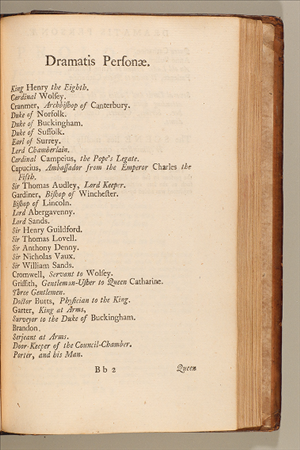 Dramatis Personæ.
King Henry the Eighth.
Cardinal Wolſey.
Cranmer, Archbiſhop of Canterbury.
Duke of Norfolk.
Duke of Buckingham.
Duke of Suffolk.
Earl of Surrey.
Lord Chamberlain.
Cardinal Campeius, the Pope's Legate.
Capucius, Ambaſſador from the Emperor Charles the
Fifth.
Sir Thomas Audley, Lord Keeper.
Gardiner, Biſhop of Wincheſter.
Biſhop of Lincoln.
Lord Abergavenny.
Lord Sands.
Sir Henry Guildford.
Sir Thomas Lovell.
Sir Anthony Denny.
Sir Nicholas Vaux.
Sir William Sands.
Cromwell, Servant to Wolſey.
Griffith, Gentleman-Uſher to Queen Catharine.
Three Gentlemen.
Doctor Butts, Phyſician to the King.
Garter, King at Arms,
Surveyor to the Duke of Buckingham.
Brandon.
Serjeant at Arms.
Door-Keeper of the Council-Chamber.
Porter, and his Man.
B b 2 Queen